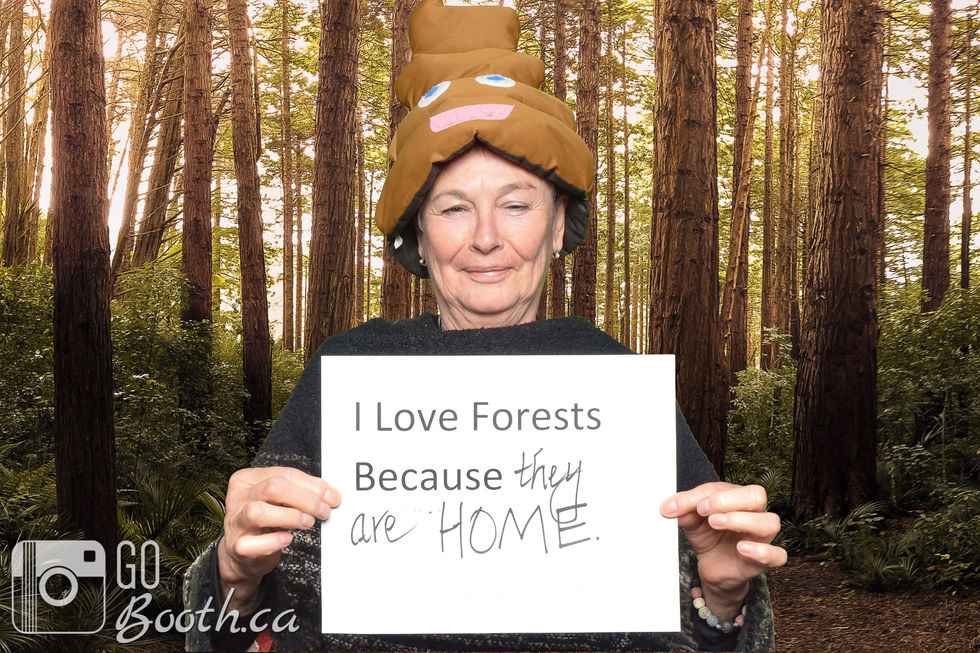 I Love Forests
Because they
are HOME.
GO
Booth.ca